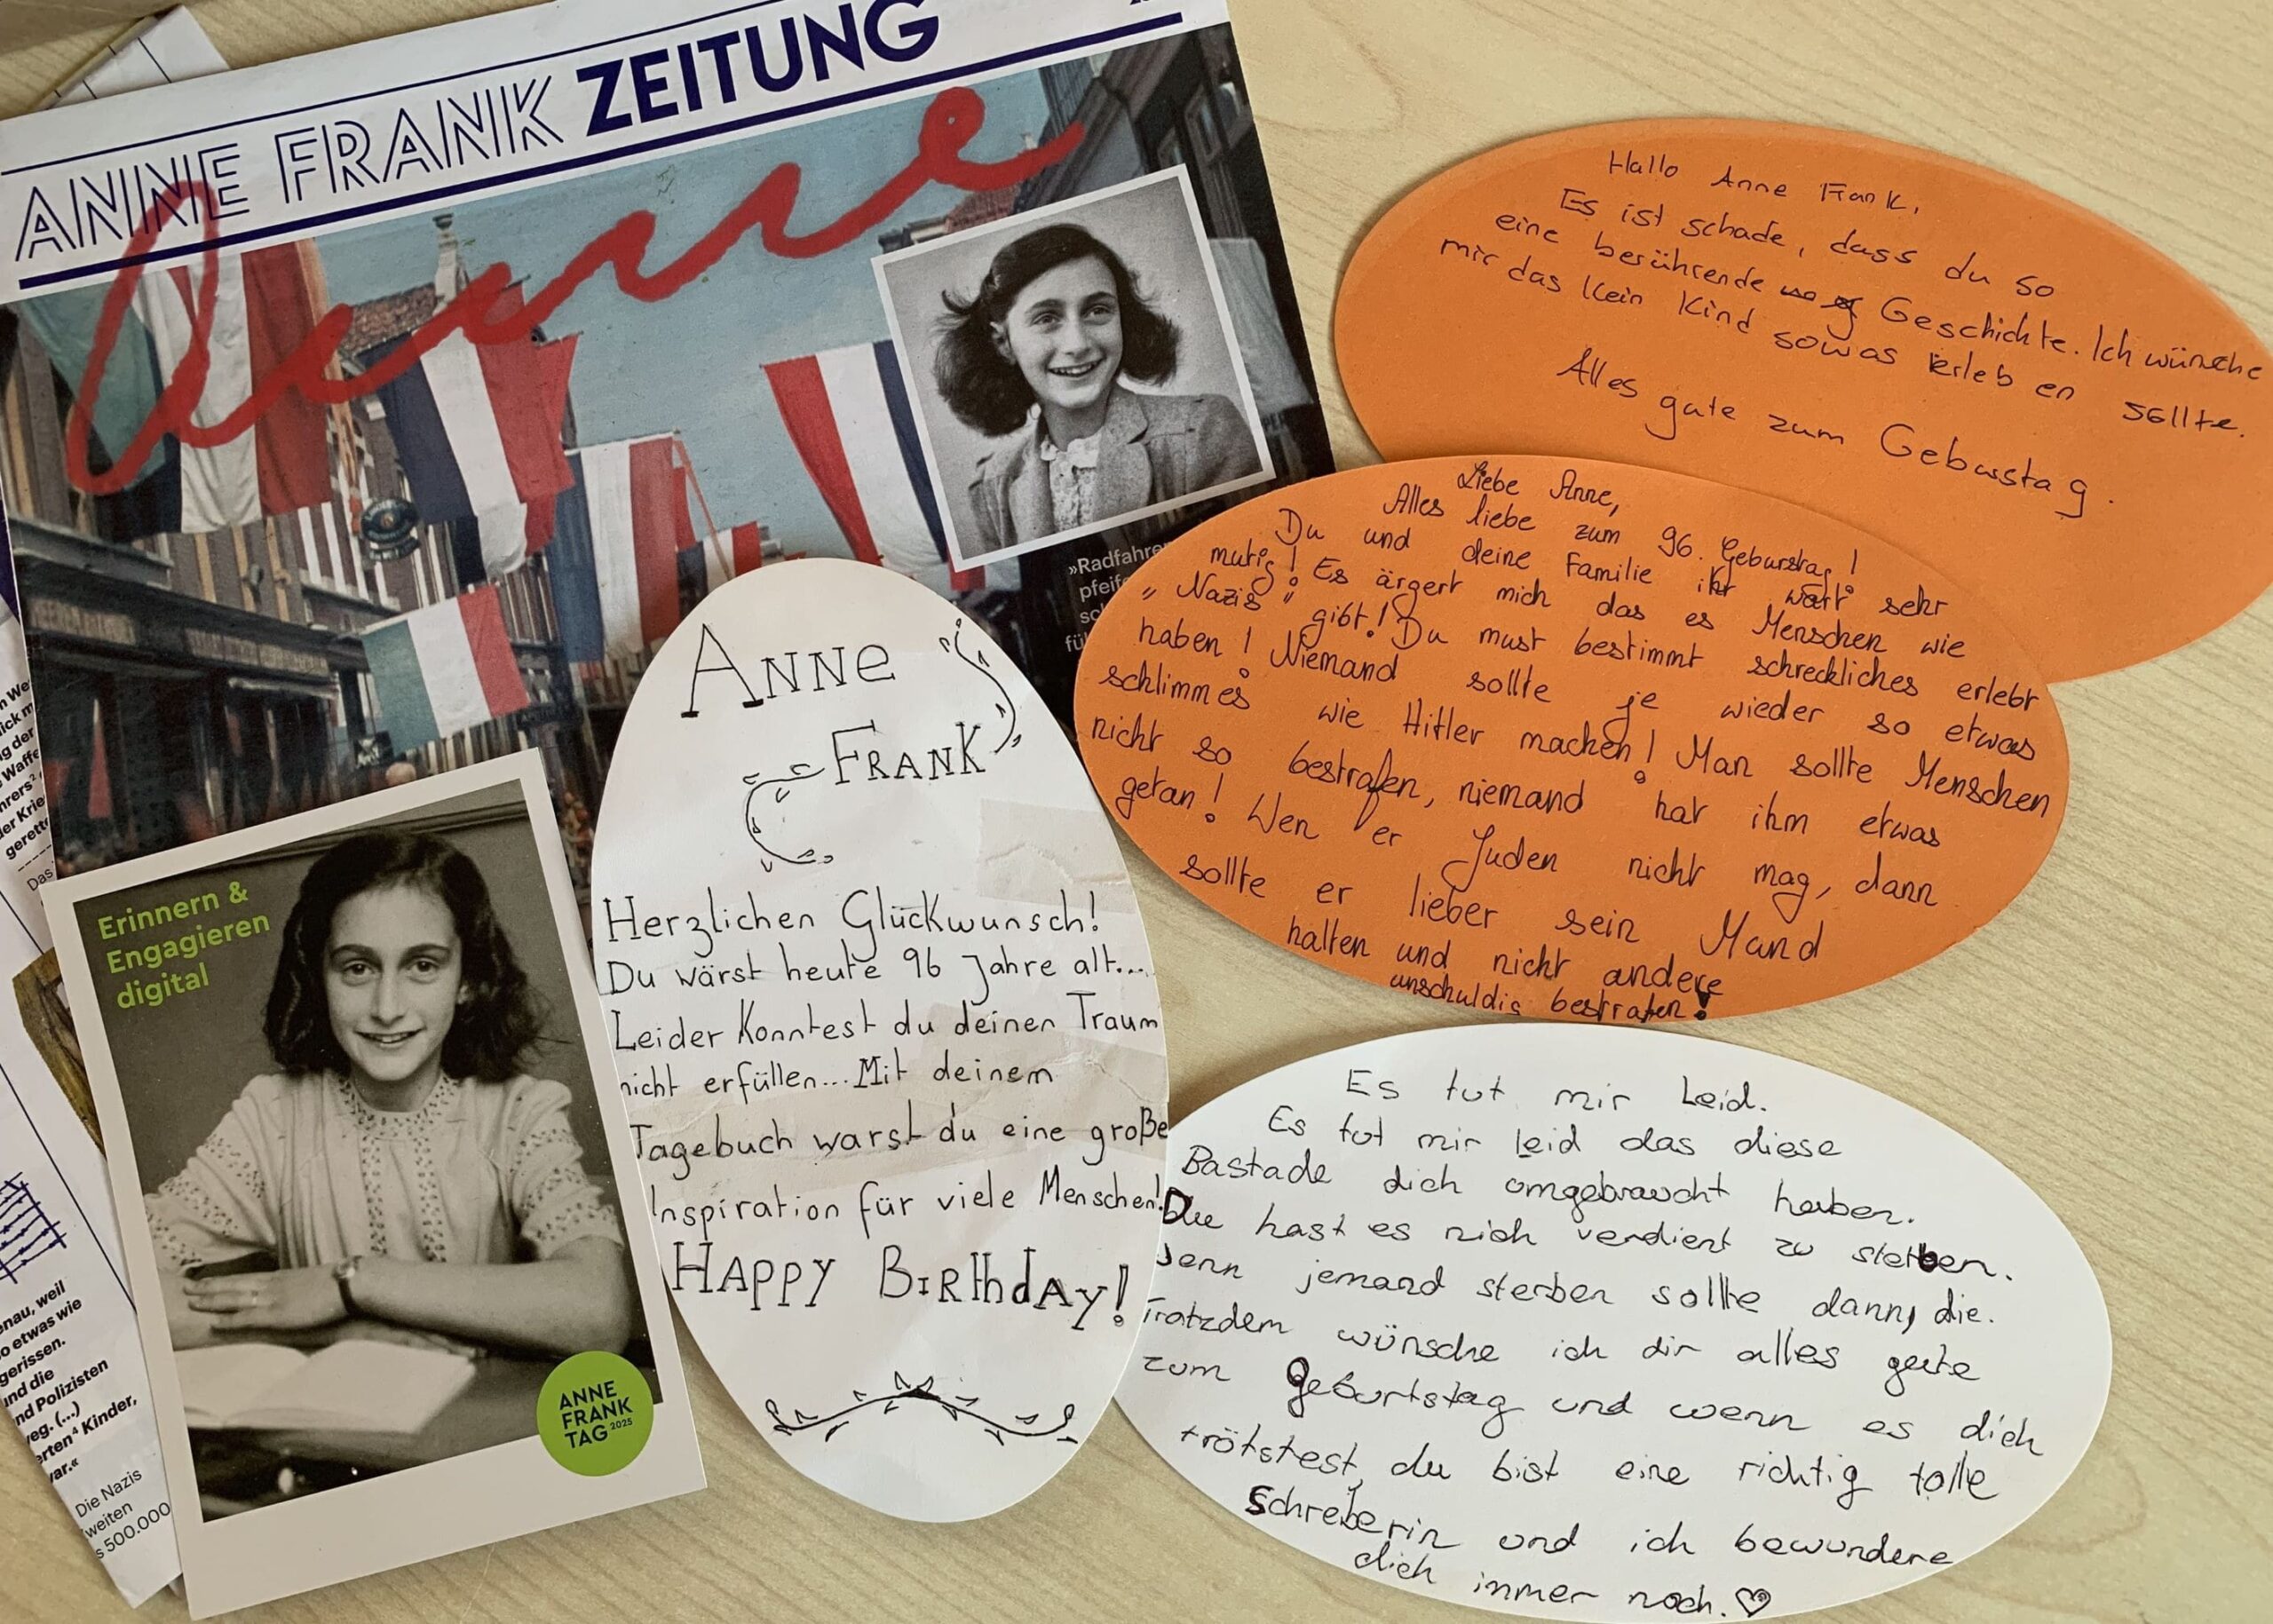 ANNE FRANK ZEITUNG
Anne
»Radfahre
pfeif
sc
fü
n We
ick m
g der
Waffe
hrers²
er Krie
gerett
Das
Erinnern &
Engagieren
digital
ANNE
FRANK
TAG 2025
enau, weil
o etwas wie
gerissen.
und die
nd Polizisten
eg. (...)
erten⁴ Kinder,
var.«
Die Nazis
weiten
s 500.000
ANNE
FRANK
Herzlichen Glückwunsch!
Du wärst heute 96 Jahre alt...
Leider Konntest du deinen Traum
nicht erfüllen...Mit deinem
Tagebuch warst du eine große
Inspiration für viele Menschen!
HAPPY BIRthdAy!
Hallo Anne Frank,
Es ist schade, dass du so
eine berührende Geschichte. Ich wünsche
mir das kein Kind sowas Erleben sollte.
Alles gute zum Geburstag.
Liebe Anne,
Alles liebe zum 96. Geburstag!
Du und deine Familie ihr wart sehr
mutig! Es ärgert mich das es Menschen wie
„Nazis" gibt! Du must bestimmt schreckliches erlebt
haben! Niemand sollte je wieder so etwas
schlimmes wie Hitler machen! Man sollte Menschen
nicht so bestrafen, niemand hat ihm etwas
getan! Wen er Juden nicht mag, dann
sollte er lieber sein Mund
halten und nicht andere
unschuldig bestrafen!
Es tut mir Leid.
Es tut mir leid das diese
Bastade dich omgebraucht haben.
Du hast es nich verdient zu sterben.
Wenn jemand sterben sollte dann, die.
Tratzdem wünsche ich dir alles gute
zum geburtstag und wenn es dich
trötstest, du bist eine richtig tolle
Schreberin und ich bewundere
dich immer noch. ♡